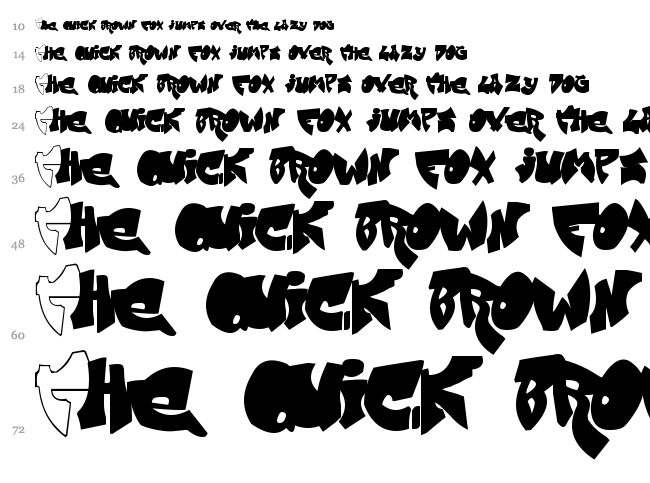 10 THE QUICK BROWN FOX JUMPS OVER THE LAZY DOG
14 THE QUICK BROWN FOX JUMPS OVER THE LAZY DOG
18 THE QUICK BROWN FOX JUMPS OVER THE LAZY DOG
24 THE QUICK BROWN FOX JUMPS OVER THE LA
36 THE QUICK BROWN FOX JUMPS
48 THE QUICK BROWN FOX
60 THE QUICK BROWN
72 THE QUICK BRO